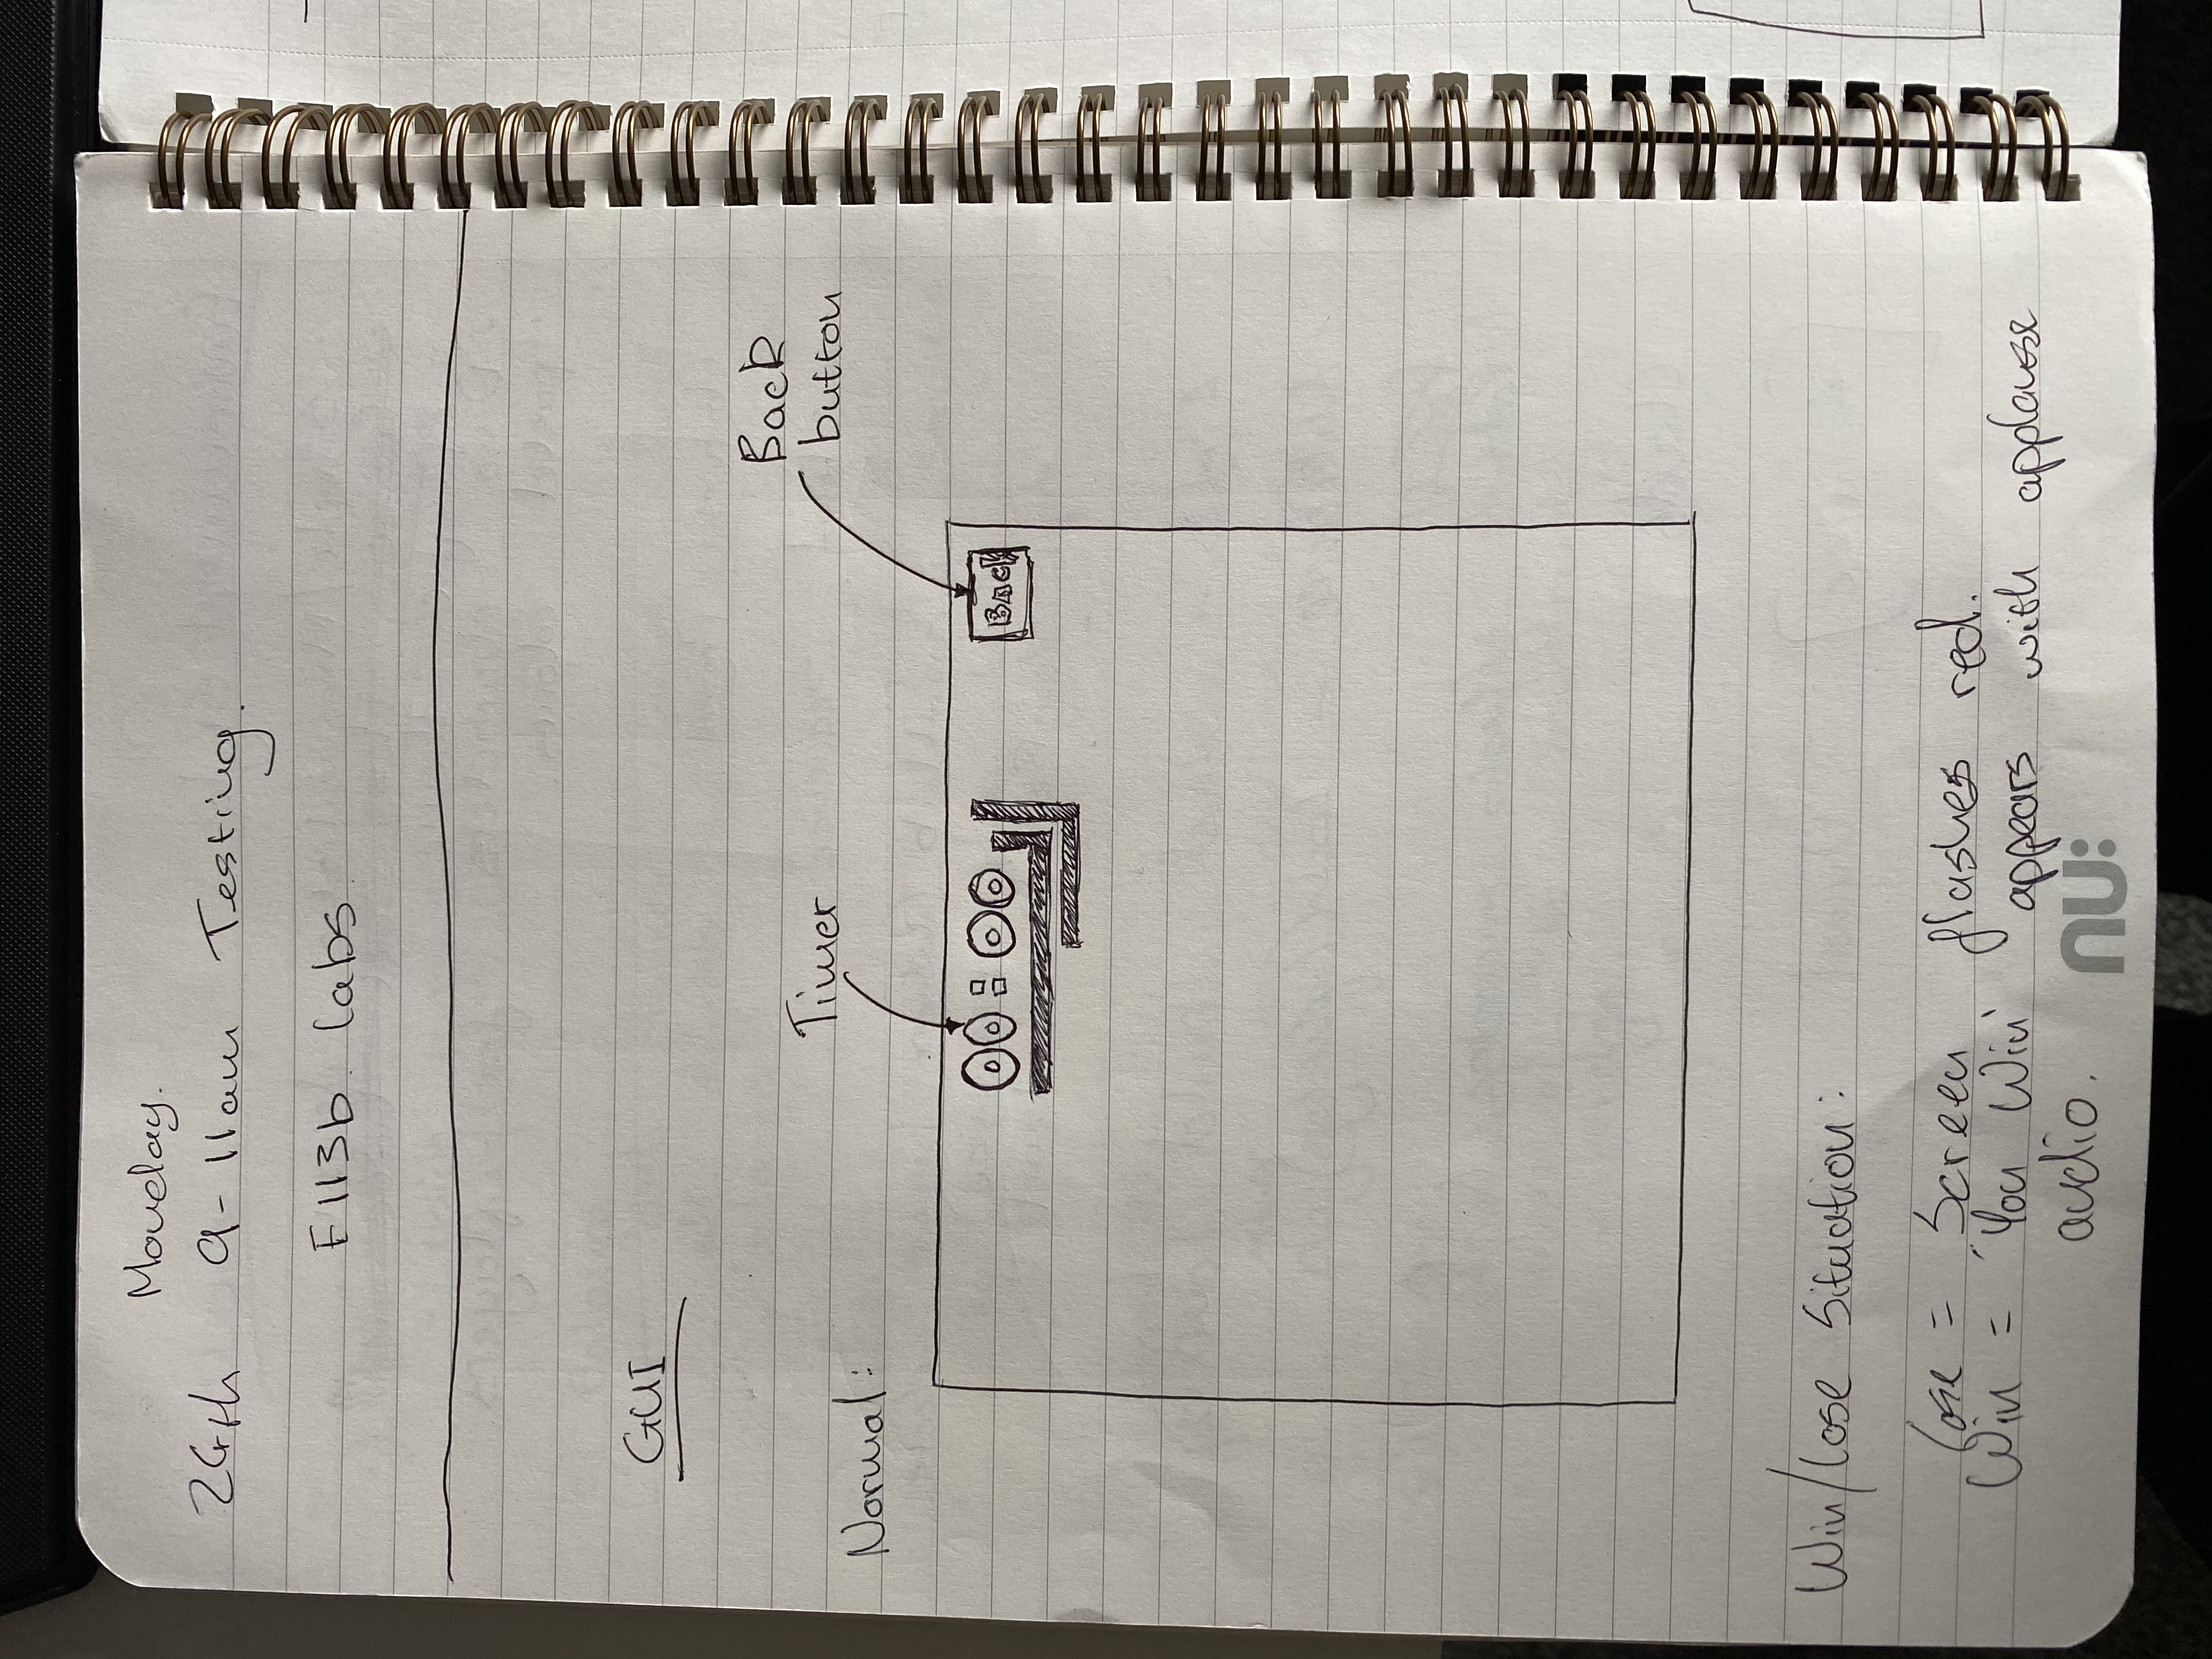 Monday.
24th 9-11am Testing.
E113b. labs.
GUI
Back
button
Timer
Normal:
00:00
Back
Win/lose Situation:
lose = Screen flashes red.
Win = 'You Win' appears with applause
audio.
nu: